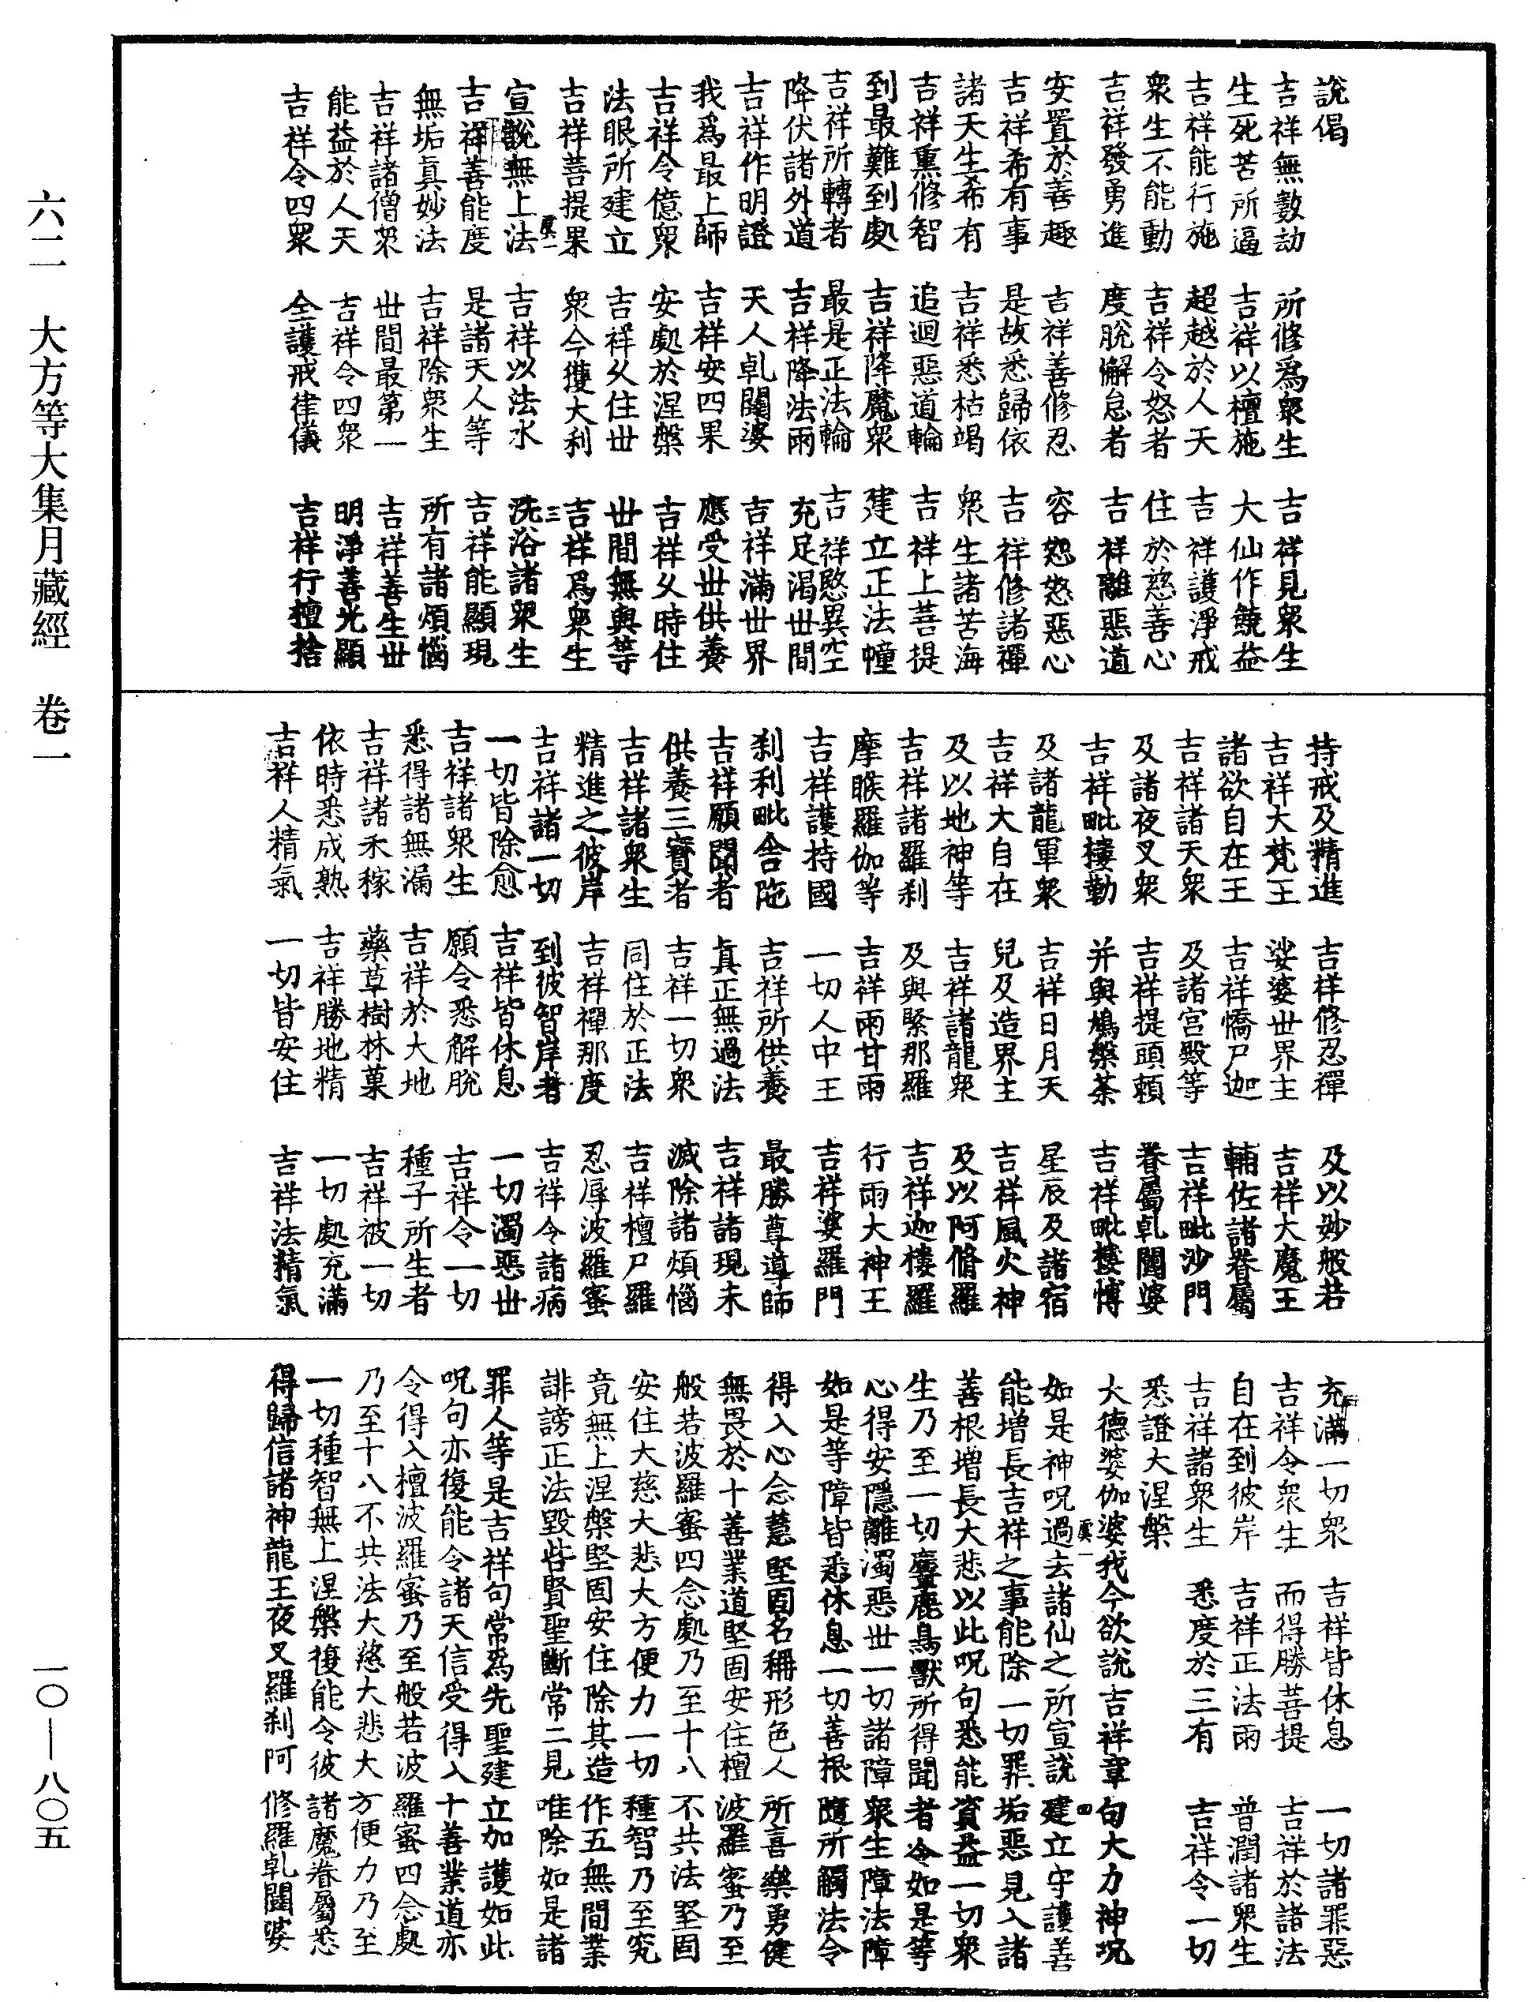 說偈
吉祥無數劫　所修為衆生　吉祥見衆生
生死苦所逼　吉祥以檀施　大仙作饒益
吉祥能行施　超越於人天　吉祥護淨戒
衆生不能動　吉祥令怒者　住於慈善心
吉祥發勇進　度脫懈怠者　吉祥離惡道
安置於善趣　吉祥善修忍　容恕怒惡心
吉祥希有事　是故悉歸依　吉祥修諸禪
諸天生希有　吉祥悉枯竭　衆生諸苦海
吉祥熏修智　追迴惡道輪　吉祥上菩提
到最難到處　吉祥降魔衆　建立正法幢
吉祥所轉者　最是正法輪　吉祥愍異空
降伏諸外道　吉祥降法雨　充足渴世間
吉祥作明證　天人乹闥婆　吉祥滿世界
我爲最上師　吉祥安四果　應受世供養
吉祥令億衆　安處於涅槃　吉祥乆時住
法眼所建立　吉祥乆住世　世間無與等
吉祥菩提果　衆今獲大利　吉祥爲衆生
宣說無上法　吉祥以法水　洗浴諸衆生
吉祥善能度　是諸天人等　吉祥能顯現
無垢真妙法　吉祥除衆生　所有諸煩惱
吉祥諸僧衆　世間最第一　吉祥善生世
能益於人天　吉祥令四衆　明淨善光顯
吉祥令四衆　全護戒律儀　吉祥行檀捨
持戒及精進　吉祥修忍禪　及以妙般若
吉祥大梵王　娑婆世界主　吉祥大魔王
諸欲自在王　吉祥憍尸迦　輔佐諸眷屬
吉祥諸天衆　及諸宮殿等　吉祥毗沙門
及諸夜叉衆　吉祥提頭賴　眷屬乹闥婆
吉祥毗樓勒　并與鳩槃茶　吉祥毗樓博
及諸龍軍衆　吉祥日月天　星辰及諸宿
吉祥大自在　兒及造界主　吉祥風火神
及以地神等　吉祥諸龍衆　及以阿脩羅
吉祥諸羅刹　及與緊那羅　吉祥迦樓羅
摩睺羅伽等　吉祥雨甘雨　行雨大神王
吉祥護持國　一切人中王　吉祥婆羅門
刹利毗舍陁　吉祥所供養　最勝尊導師
吉祥願聞者　真正無過法　吉祥諸現未
供養三寳者　吉祥一切衆　滅除諸煩惱
吉祥諸衆生　同住於正法　吉祥檀尸羅
精進之彼岸　吉祥禪那度　忍辱波羅蜜
吉祥諸一切　到彼智岸者　吉祥令諸病
一切皆除愈　吉祥皆休息　一切濁惡世
吉祥諸衆生　願令悉解脫　吉祥令一切
悉得諸無漏　吉祥於大地　種子所生者
吉祥諸禾稼　藥草樹林菓　吉祥彼一切
依時悉成熟　吉祥勝地精　一切處充滿
吉祥人精氣　一切皆安住　吉祥法精氣
充滿一切衆　吉祥皆休息　一切諸罪惡
吉祥令衆生　而得勝菩提　吉祥於諸法
自在到彼岸　吉祥正法雨　普潤諸衆生
吉祥諸衆生　悉度於三有　吉祥令一切
悉證大涅槃
大德婆伽婆我今欲說吉祥章句大力神呪
如是神呪過去諸仙之所宣說建立守護善
能增長吉祥之事能除一切罪垢惡見入諸
善根增長大悲以此呪句悉能資益一切衆
生乃至一切麞鹿鳥獸所得聞者令如是等
心得安隱離濁惡世一切諸障衆生障法障
如是等障皆悉休息一切善根隨所觸法令
得入心念慧堅固名稱形色人所喜樂勇健
無畏於十善業道堅固安住檀波羅蜜乃至
般若波羅蜜四念處乃至十八不共法堅固
安住大慈大悲大方便力一切種智乃至究
竟無上涅槃堅固安住除其造作五無間業
誹謗正法毀呰賢聖斷常二見唯除如是諸
罪人等是吉祥句常為先聖建立加護如此
呪句亦復能令諸天信受得入十善業道亦
令得入檀波羅蜜乃至般若波羅蜜四念處
乃至十八不共法大慈大悲大方便力乃至
一切種智無上涅槃復能令彼諸魔眷屬悉
得歸信諸神龍王夜叉羅刹阿修羅乹闥婆
六二　大方等大集月藏經　卷一
一〇—八〇五